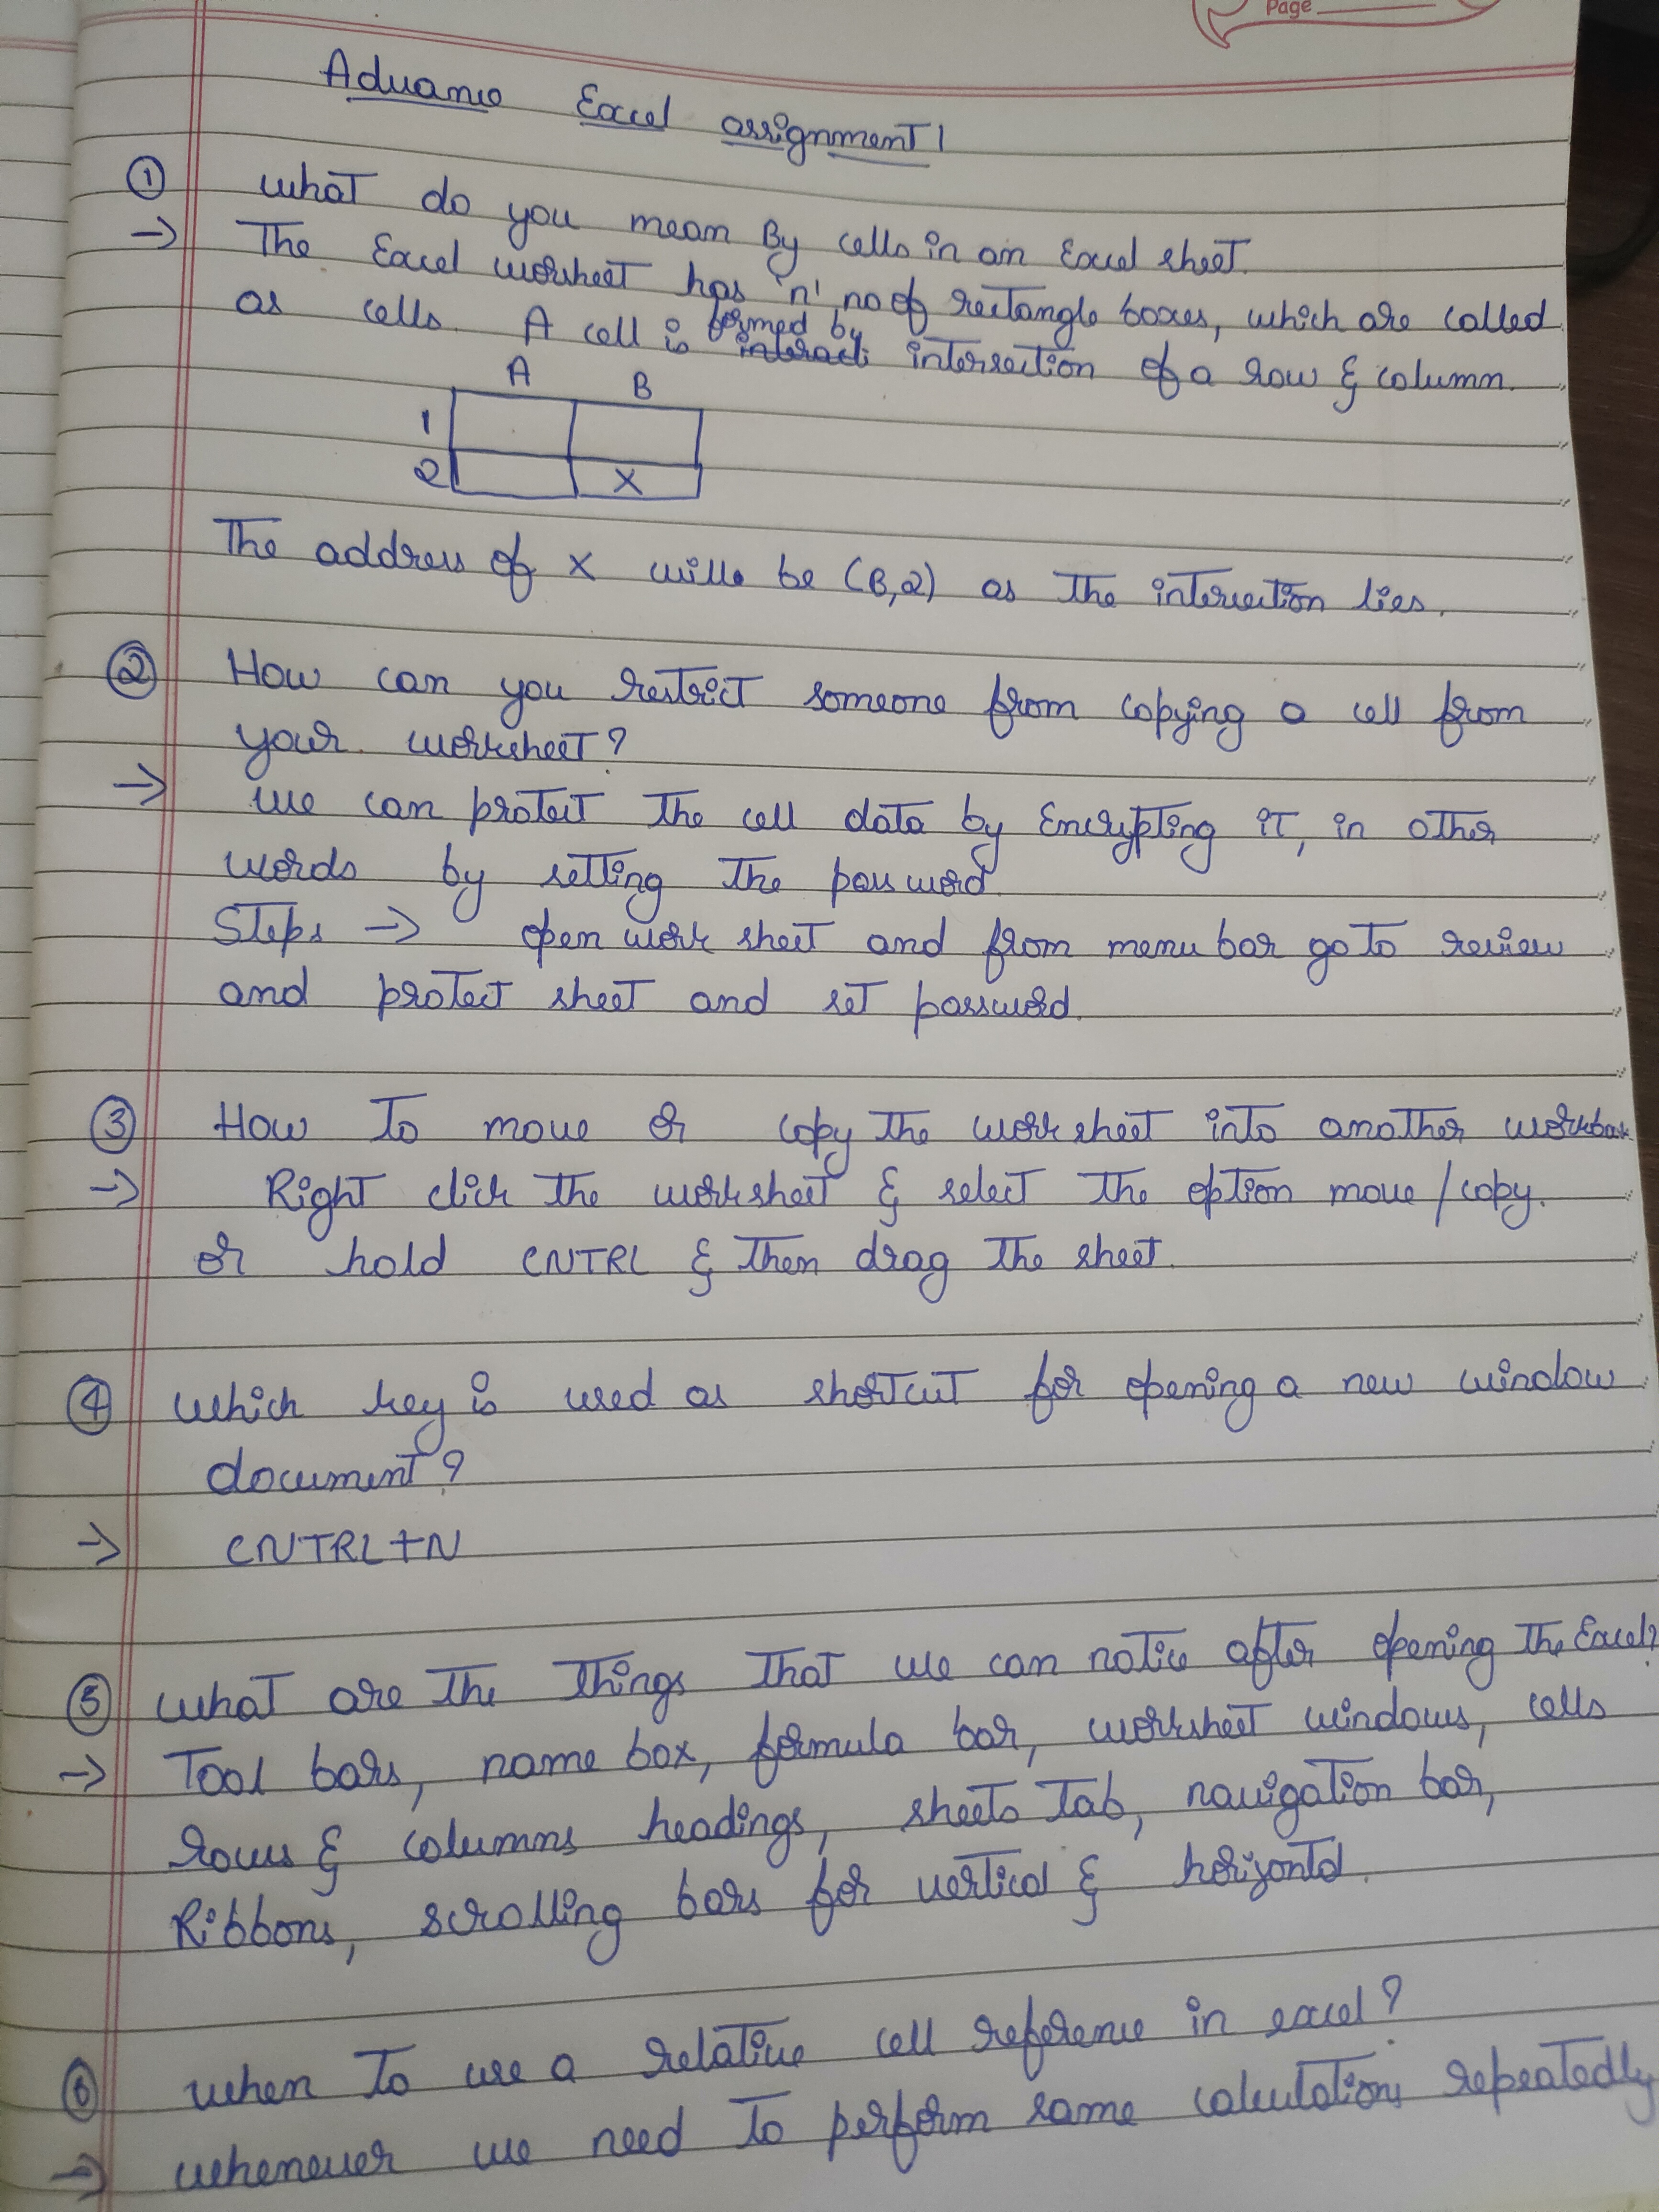 Page
Advance Excel assignment 1
① what do you mean By cells in an Excel sheet.
→ The Excel worsheet has 'n' no of rectangle boxes, which are called
as cells. A cell is formed by intersection of a row & column.
A B
1
2 X
The address of X will be (B,2) as the intersection lies.
② How can you restrict someone from copying a cell from
your worksheet?
→ we can protect the cell data by Encrypting it, in other
words by setting the password.
Steps → open work sheet and from menu bar go to review
and protect sheet and set password.
③ How to move or copy the work sheet into another workbook
→ Right click the worksheet & select the option move/copy.
or hold CNTRL & then drag the sheet.
④ which key is used as shortcut for opening a new window
document?
→ CNTRL+N
⑤ what are the things that we can notice after opening the Excel?
→ Tool bars, name box, formula bar, worksheet windows, cells
rows & columns headings, sheets Tab, navigation bar,
Ribbons, scrolling bars for vertical & horizontal.
⑥ when to use a relative cell reference in excel?
→ whenever we need to perform same calculations repeatedly